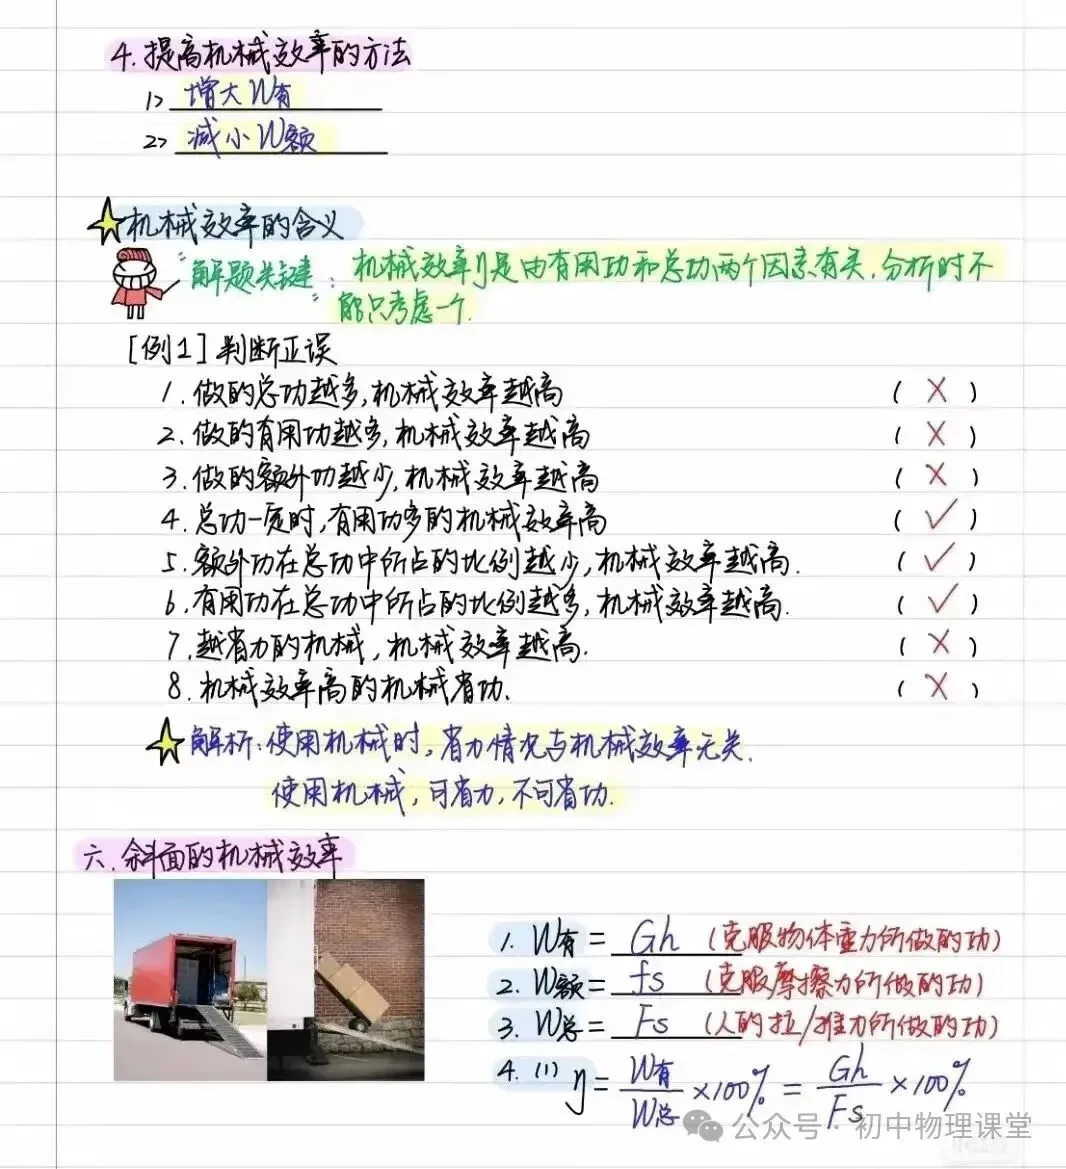 4.提高机械效率的方法
1> 增大W有
2> 减小W额
机械效率的含义
"解题关键": 机械效率η是由有用功和总功两个因素有关,分析时不
能只考虑一个.
[例1]判断正误
1.做的总功越多,机械效率越高 ( × )
2.做的有用功越多,机械效率越高 ( × )
3.做的额外功越少,机械效率越高 ( × )
4.总功一定时,有用功多的机械效率高 ( ✓ )
5.额外功在总功中所占的比例越少,机械效率越高. ( ✓ )
6.有用功在总功中所占的比例越多,机械效率越高. ( ✓ )
7.越省力的机械,机械效率越高. ( × )
8.机械效率高的机械省功. ( × )
解析:使用机械时,省力情况与机械效率无关.
使用机械,可省力,不可省功.
六.斜面的机械效率
1. W有= Gh (克服物体重力所做的功)
2. W额= fs (克服摩擦力所做的功)
3. W总= Fs (人的拉/推力所做的功)
4.(1) η= W有/W总 ×100% = Gh/Fs ×100%
公众号·初中物理课堂